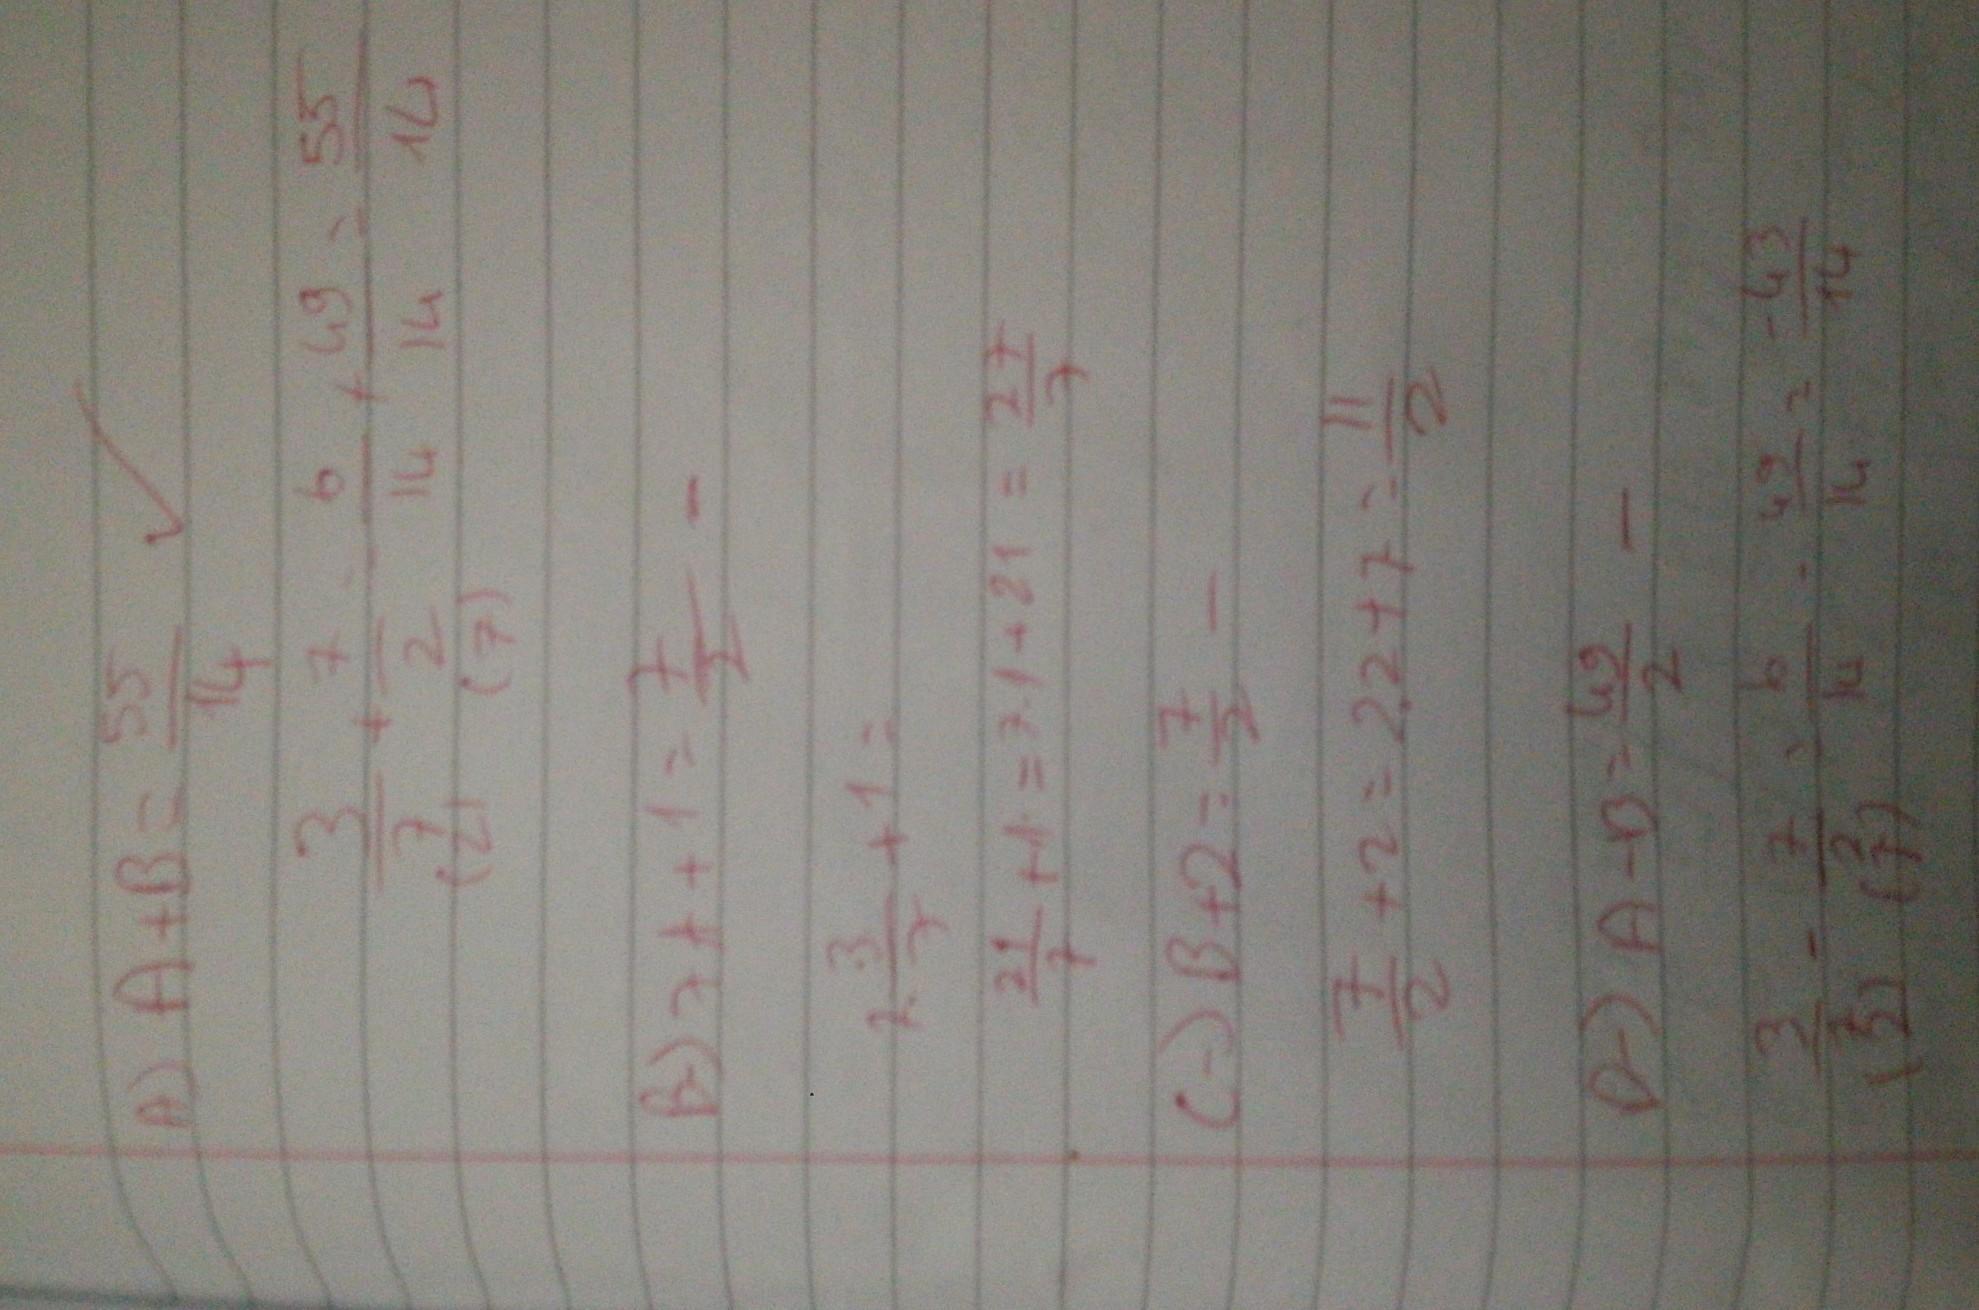 A) A+B = 55/14 ✓
3/7 + 7/2 = 6/14 + 49/14 = 55/14
(2) (7)
B-) 7A + 1 = 7/2 -
7·3/7 + 1 =
21/7 + 1 = 7.1+21 = 27/7
C-) B+2 = 7/2 -
7/2 + 2 = 2.2+7 = 11/2
D-) A-B = 49/2 -
3/7 - 7/2 = 6/14 - 49/14 = -43/14
(7)